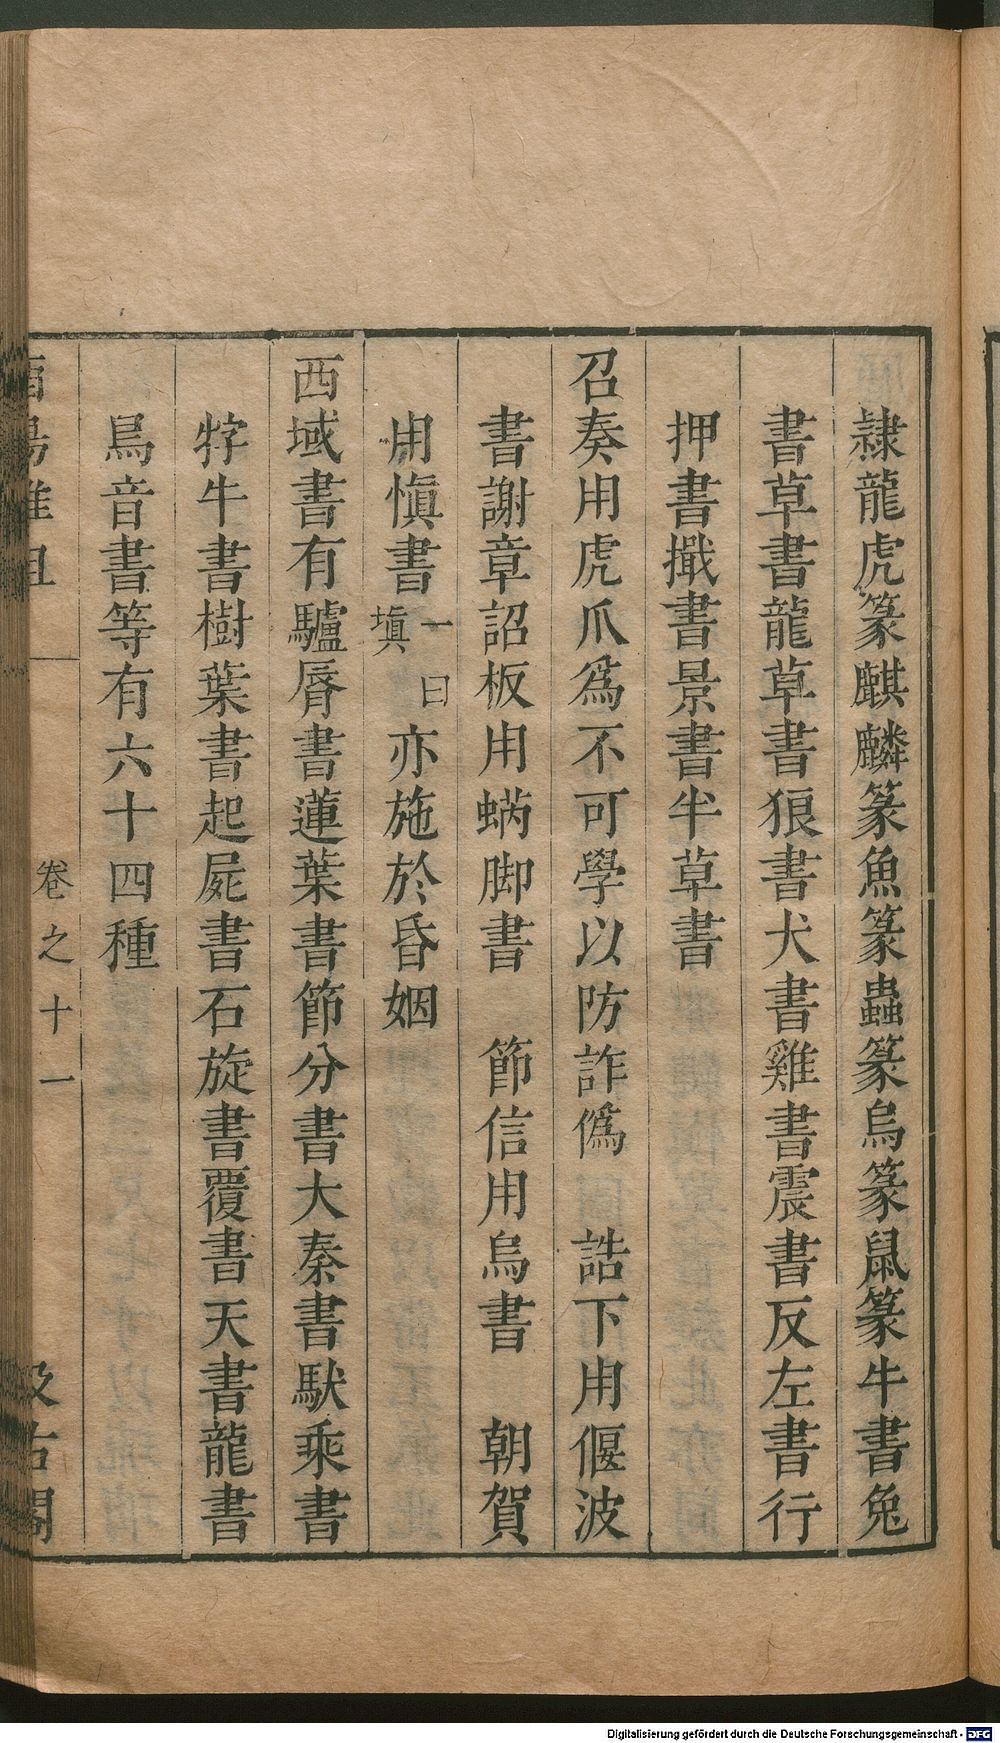 隷龍虎篆麒麟篆魚篆蟲篆烏篆鼠篆牛書兔
書草書龍草書狼書犬書雞書震書反左書行
押書擑書景書半草書
召奏用虎爪爲不可學以防詐僞　誥下用偃波
書謝章詔板用蚋脚書　節信用烏書　朝賀
用愼書一曰塡亦施於昏姻
西域書有驢脣書蓮葉書節分書大秦書馱乘書
牸牛書樹葉書起屍書石旋書覆書天書龍書
烏音書等有六十四種
酉陽雜俎　卷之十一　汲古閣
Digitalisierung gefördert durch die Deutsche Forschungsgemeinschaft - DFG